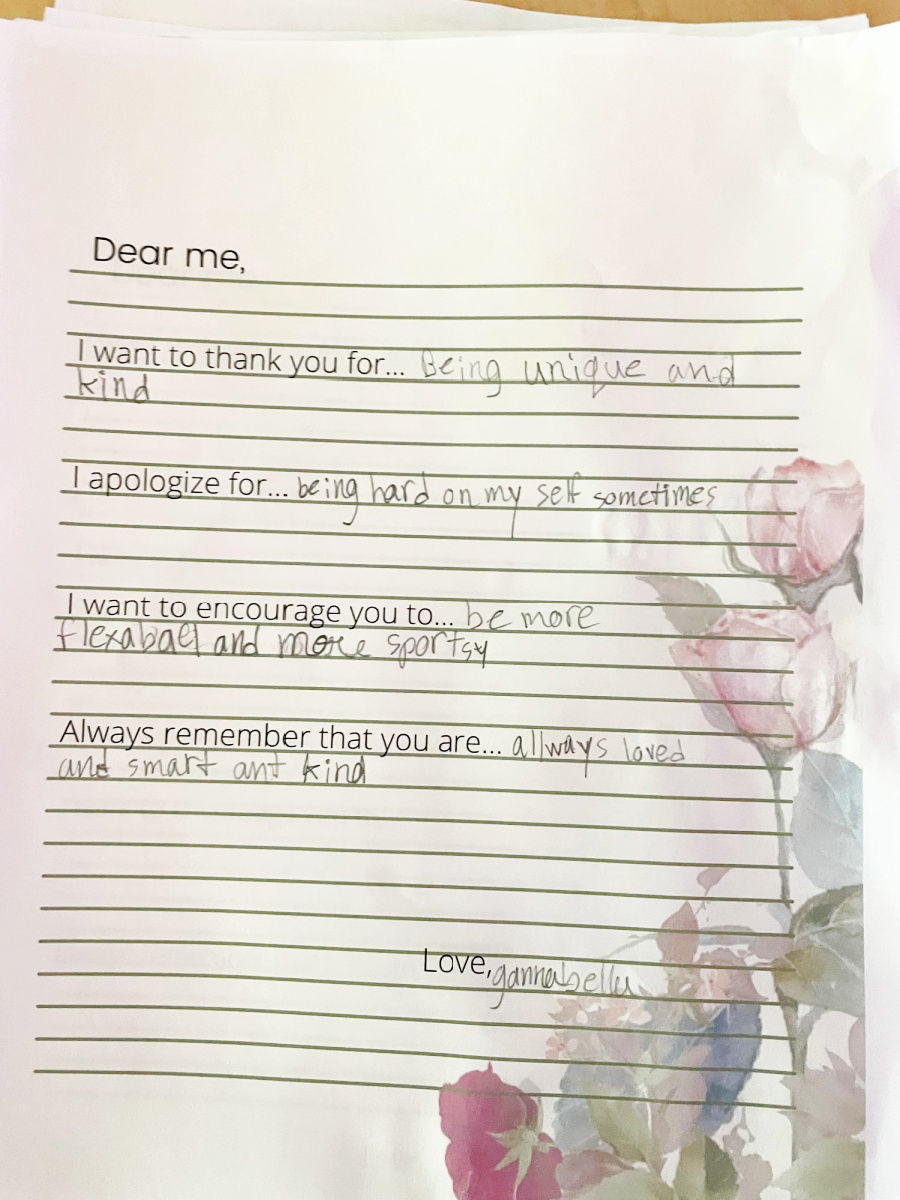 Dear me,
I want to thank you for... Being unique and
kind
I apologize for... being hard on my self sometimes
I want to encourage you to... be more
flexabael and more sportsy
Always remember that you are... allways loved
and smart ant kind
Love, gannabella